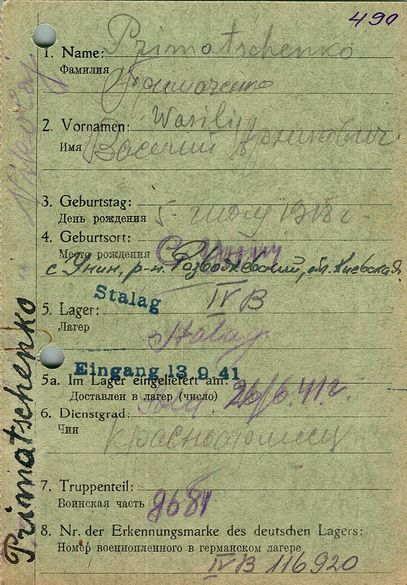 490
1. Name: Primatschenko
Фамилия Примаченко
2. Vornamen: Wasilij
Имя Василий Архипович
3. Geburtstag:
День рождения 5 - июля 1918 г
4. Geburtsort:
Место рождения
с Унин, р-н Розважевский, обл. Киевская
Stalag IV B
5. Lager:
Лагер Stalag
Eingang 13 9 41
5a. Im Lager eingeliefert am:
Доставлен в лагер (число) 26/6.41 г.
6. Dienstgrad:
Чин красноармеец
7. Truppenteil:
Воинская часть
8. Nr. der Erkennungsmarke des deutschen Lagers:
Номер военнопленного в германском лагере
IV B 116920
Primatschenko